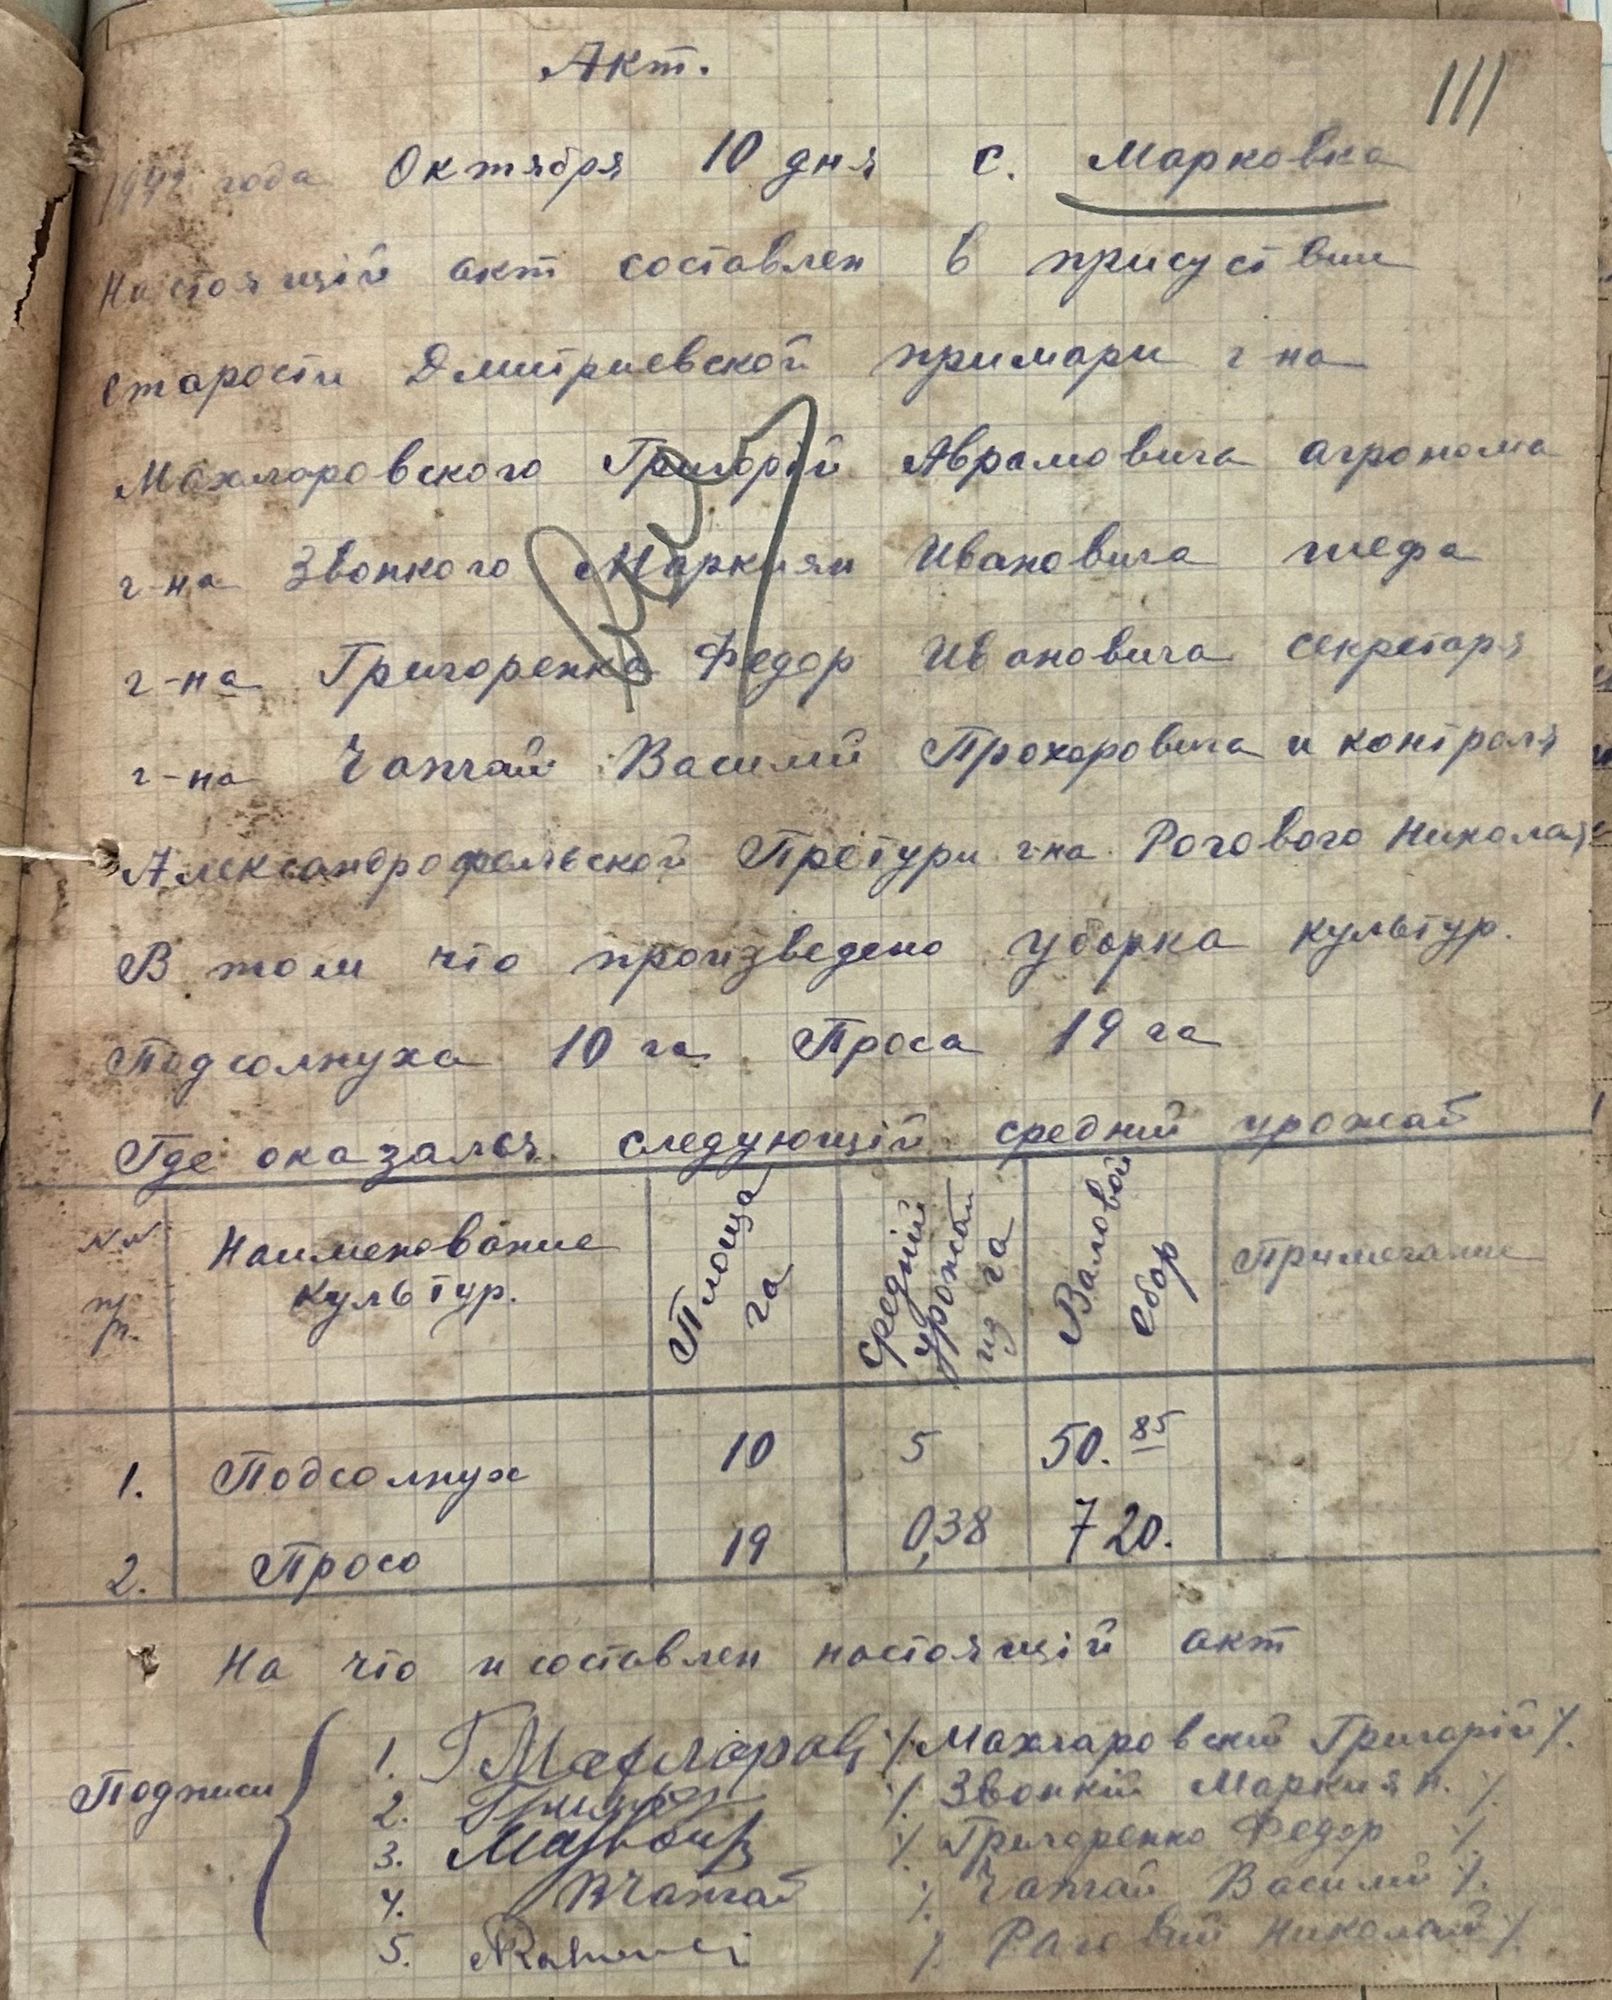 Акт.
111
1942 года Октября 10 дня с. Марковка
Настоящій акт составлен в присуствии
старости Дмитриевской примари г-на
Махларовского Григорій Аврамовича агронома
г-на Звонкого Маркиян Ивановича шефа
г-на Григоренко Федор Ивановича секретаря
г-на Чапчай Василий Прохоровича и контроля
Александрофельской Претури г-на Рогового Николая
В том что произведено уборка культур.
Подсолнуха 10 га Проса 19 га
Где оказалься следующій средний урожай
№№ п/п. Наименование культур. Площа га Средній урожай из га Валовой сбор Примечание
1. Подсолнух 10 5 50.85
2. Просо 19 0,38 720.
На что и составлен настоящій акт
Подписи
1. /Махларовский Григорій/.
2. /Звонкій Маркиян./
3. /Григоренко Федор/
4. /Чапчай Василий/.
5. /Роговий Николай/.